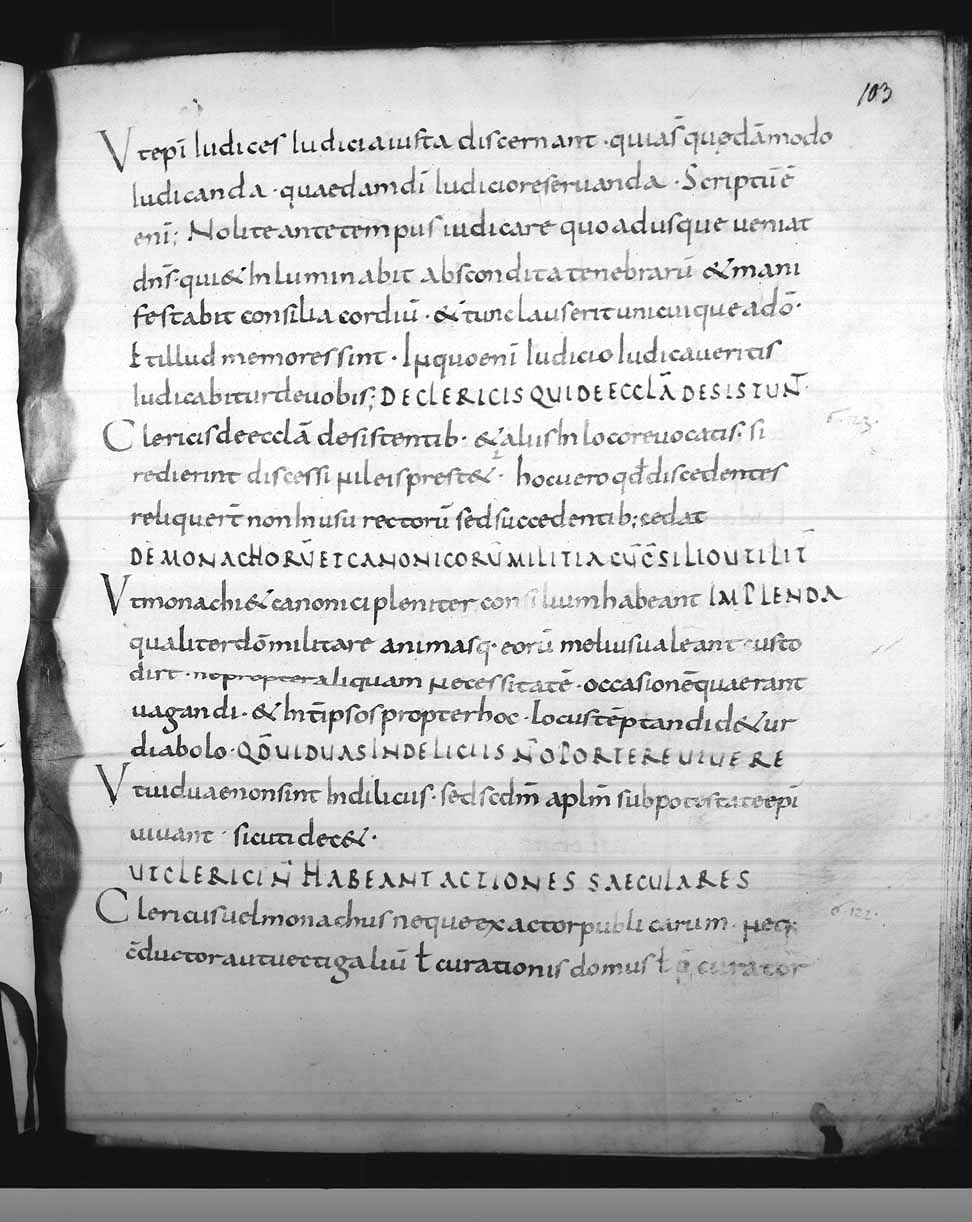 103
Vt epī Iudices Iudicia iusta discernant · quia s̄ quędāmodo
Iudicanda · quaedam dī Iudicio reseruanda · Scriptū ē
enī; Nolite ante tempus iudicare quo adusque ueniat
dn̄s · qui & Inluminabit abscondita tenebrarū & mani
festabit consilia cordiū · & tunc laus erit unicuique a dō ·
ł illud memores sint · In quo enī Iudicio Iudicaueritis
Iudicabitur de uobis; DE CLERICIS QUI DE ECCLĀ DESISTUNT ·
Clericis de ecclā desistentib · & aliis In loco reuocatis · si
redierint discessi nil eis prest& · hoc uero qđ discedentes
reliquer̄t non In usu rectorū sed succedentib; cedat
DE MONACHORŪ ET CANONICORŪ MILITIA CŪ C̄SILIO UTILIT̄
Vt monachi & canonici pleniter consilium habeant IMPLENDA
qualiter dō militare animasq · eorū melius ualeant custo
dire · ne propter aliquam necessitatē · occasionē quaerant
uagandi · & Int̄ ipsos propter hoc · locus tēptandi d&ur
diabolo · QD̄ UIDUAS IN DELICIIS N̄ OPORTERE UIUERE
Vt uiduae non sint In diliciis · sed scdm̄ aplm̄ sub potestate epī
uiuant · sicuti dec& ·
UT CLERICI N̄ HABEANT ACTIONES SAECULARES
Clericus uel monachus neque exactor publicarum · neq;
c̄ductor aut uectigaliū ł curationis domus ł p̄curator